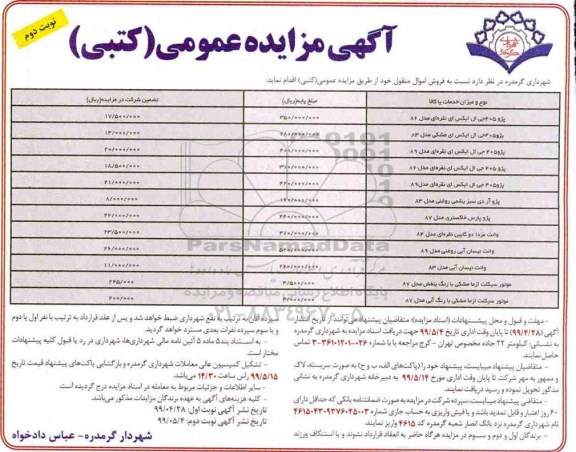 نوبت دوم
آگهی مزایده عمومی (کتبی)
شهرداری گرمدره در نظر دارد نسبت به فروش اموال منقول خود از طریق مزایده عمومی(کتبی) اقدام نماید:
نوع و میزان خدمات یا کالا	مبلغ پایه(ریال)	تضمین شرکت در مزایده(ریال)
پژو ۴۰۵جی ال ایکس ای نقره‌ای مدل ۸۶	۳۵۰/۰۰۰/۰۰۰	۱۷/۵۰۰/۰۰۰
پژو۴۰۵جی ال ایکس ای مشکی مدل ۸۳	۲۸۰/۰۰۰/۰۰۰	۱۴/۰۰۰/۰۰۰
پژو۴۰۵جی ال ایکس ای نقره‌ای مدل ۸۹	۴۰۰/۰۰۰/۰۰۰	۲۰/۰۰۰/۰۰۰
پژو ۴۰۵جی ال ایکس ای نقره‌ای مدل ۸۶	۳۷۰/۰۰۰/۰۰۰	۱۸/۵۰۰/۰۰۰
پژو۴۰۵جی ال ایکس ای نقره‌ای مدل۸۹	۴۲۰/۰۰۰/۰۰۰	۲۱/۰۰۰/۰۰۰
پژو آر دی سبز یشمی روغنی مدل ۸۳	۸/۰۰۰/۰۰۰
پژو پارس خاکستری مدل ۸۷	۴۴۰/۰۰۰/۰۰۰	۲۲/۰۰۰/۰۰۰
وانت مزدا دو کابین نقره‌ای مدل ۸۴	۲۳/۵۰۰/۰۰۰
وانت نیسان آبی روغنی مدل ۸۹	۵۲۰/۰۰۰/۰۰۰	۲۶/۰۰۰/۰۰۰
وانت نیسان آبی مدل ۸۳	۱۱/۰۰۰/۰۰۰
موتور سیکلت ازما مشکی با رنگ بنفش مدل ۸۷	۴/۵۰۰/۰۰۰	۲۲۵/۰۰۰
موتور سیکلت ازما مشکی با رنگ آبی مدل ۸۷	۴/۰۰۰/۰۰۰	۲۰۰/۰۰۰
ParsNamadData
پایگاه اطلاع رسانی مناقصه و مزایده
- مهلت و قبول و محل پیشنهادات (اسناد مزایده): متقاضیان پیشنهاد می‌توانند از تاریخ انتشار
آگهی (۹۹/۴/۲۸) تا پایان وقت اداری تاریخ ۹۹/۵/۴ جهت دریافت اسناد مزایده به شهرداری گرمدره
به نشانی: کیلومتر ۲۲ جاده مخصوص تهران - کرج مراجعه یا با شماره ۰۲۶-۳۶۱۰۱۲۰۱-۳ تماس
حاصل نمایند.
- متقاضیان پیشنهاد میبایست، پیشنهاد خود را (پاکت‌های الف، ب و ج) به صورت سربسته، لاک
و ممهور به مهر شرکت تا پایان وقت اداری مورخ ۹۹/۵/۱۴ به دبیرخانه شهرداری گرمدره به نشانی
مذکور تحویل نموده و رسید دریافت نمایند.
- متقاضیان میبایست، سپرده شرکت در مزایده به صورت ضمانتنامه بانکی که حداقل دارای
۶۰ روز اعتبار و قابل تمدید باشد و یا فیش واریزی به حساب جاری شماره ۴۶۱۵۰۴۳۰۹۳۷۶۰۲۵۰۰۳
نام شهرداری گرمدره نزد بانک انصار شعبه گرمدره کد ۴۶۱۵ واریز نمایند.
- برندگان اول و دوم و سوم در مزایده هرگاه حاضر به انعقاد قرارداد نشوند و یا استنکاف ورزند
سپرده آنان به ترتیب به نفع شهرداری ضبط خواهد شد و پس از عقد قرارداد به ترتیب با نفر اول یا دوم
و یا سوم سپرده نفرات بعدی مسترد خواهد گردید.
- به استناد بند۵ ماده ۵ آئین نامه مالی شهرداری‌ها، شهرداری در رد یا قبول کلیه پیشنهادات
مختار است.
- تشکیل کمیسیون عالی معاملات شهرداری گرمدره و بازگشایی پاکت‌های پیشنهاد قیمت تاریخ
۹۹/۵/۱۵ راس ساعت ۱۴/۳۰ می‌باشد.
- سایر اطلاعات و جزئیات مربوط به معامله در اسناد مزایده درج گردیده است.
- کلیه هزینه‌های آگهی به عهده برندگان مزایدات مذکور می‌باشد.
تاریخ نشر آگهی نوبت اول: ۹۹/۰۴/۲۸
تاریخ نشر آگهی نوبت دوم: ۹۹/۰۵/۴
شهردار گرمدره- عباس دادخواه